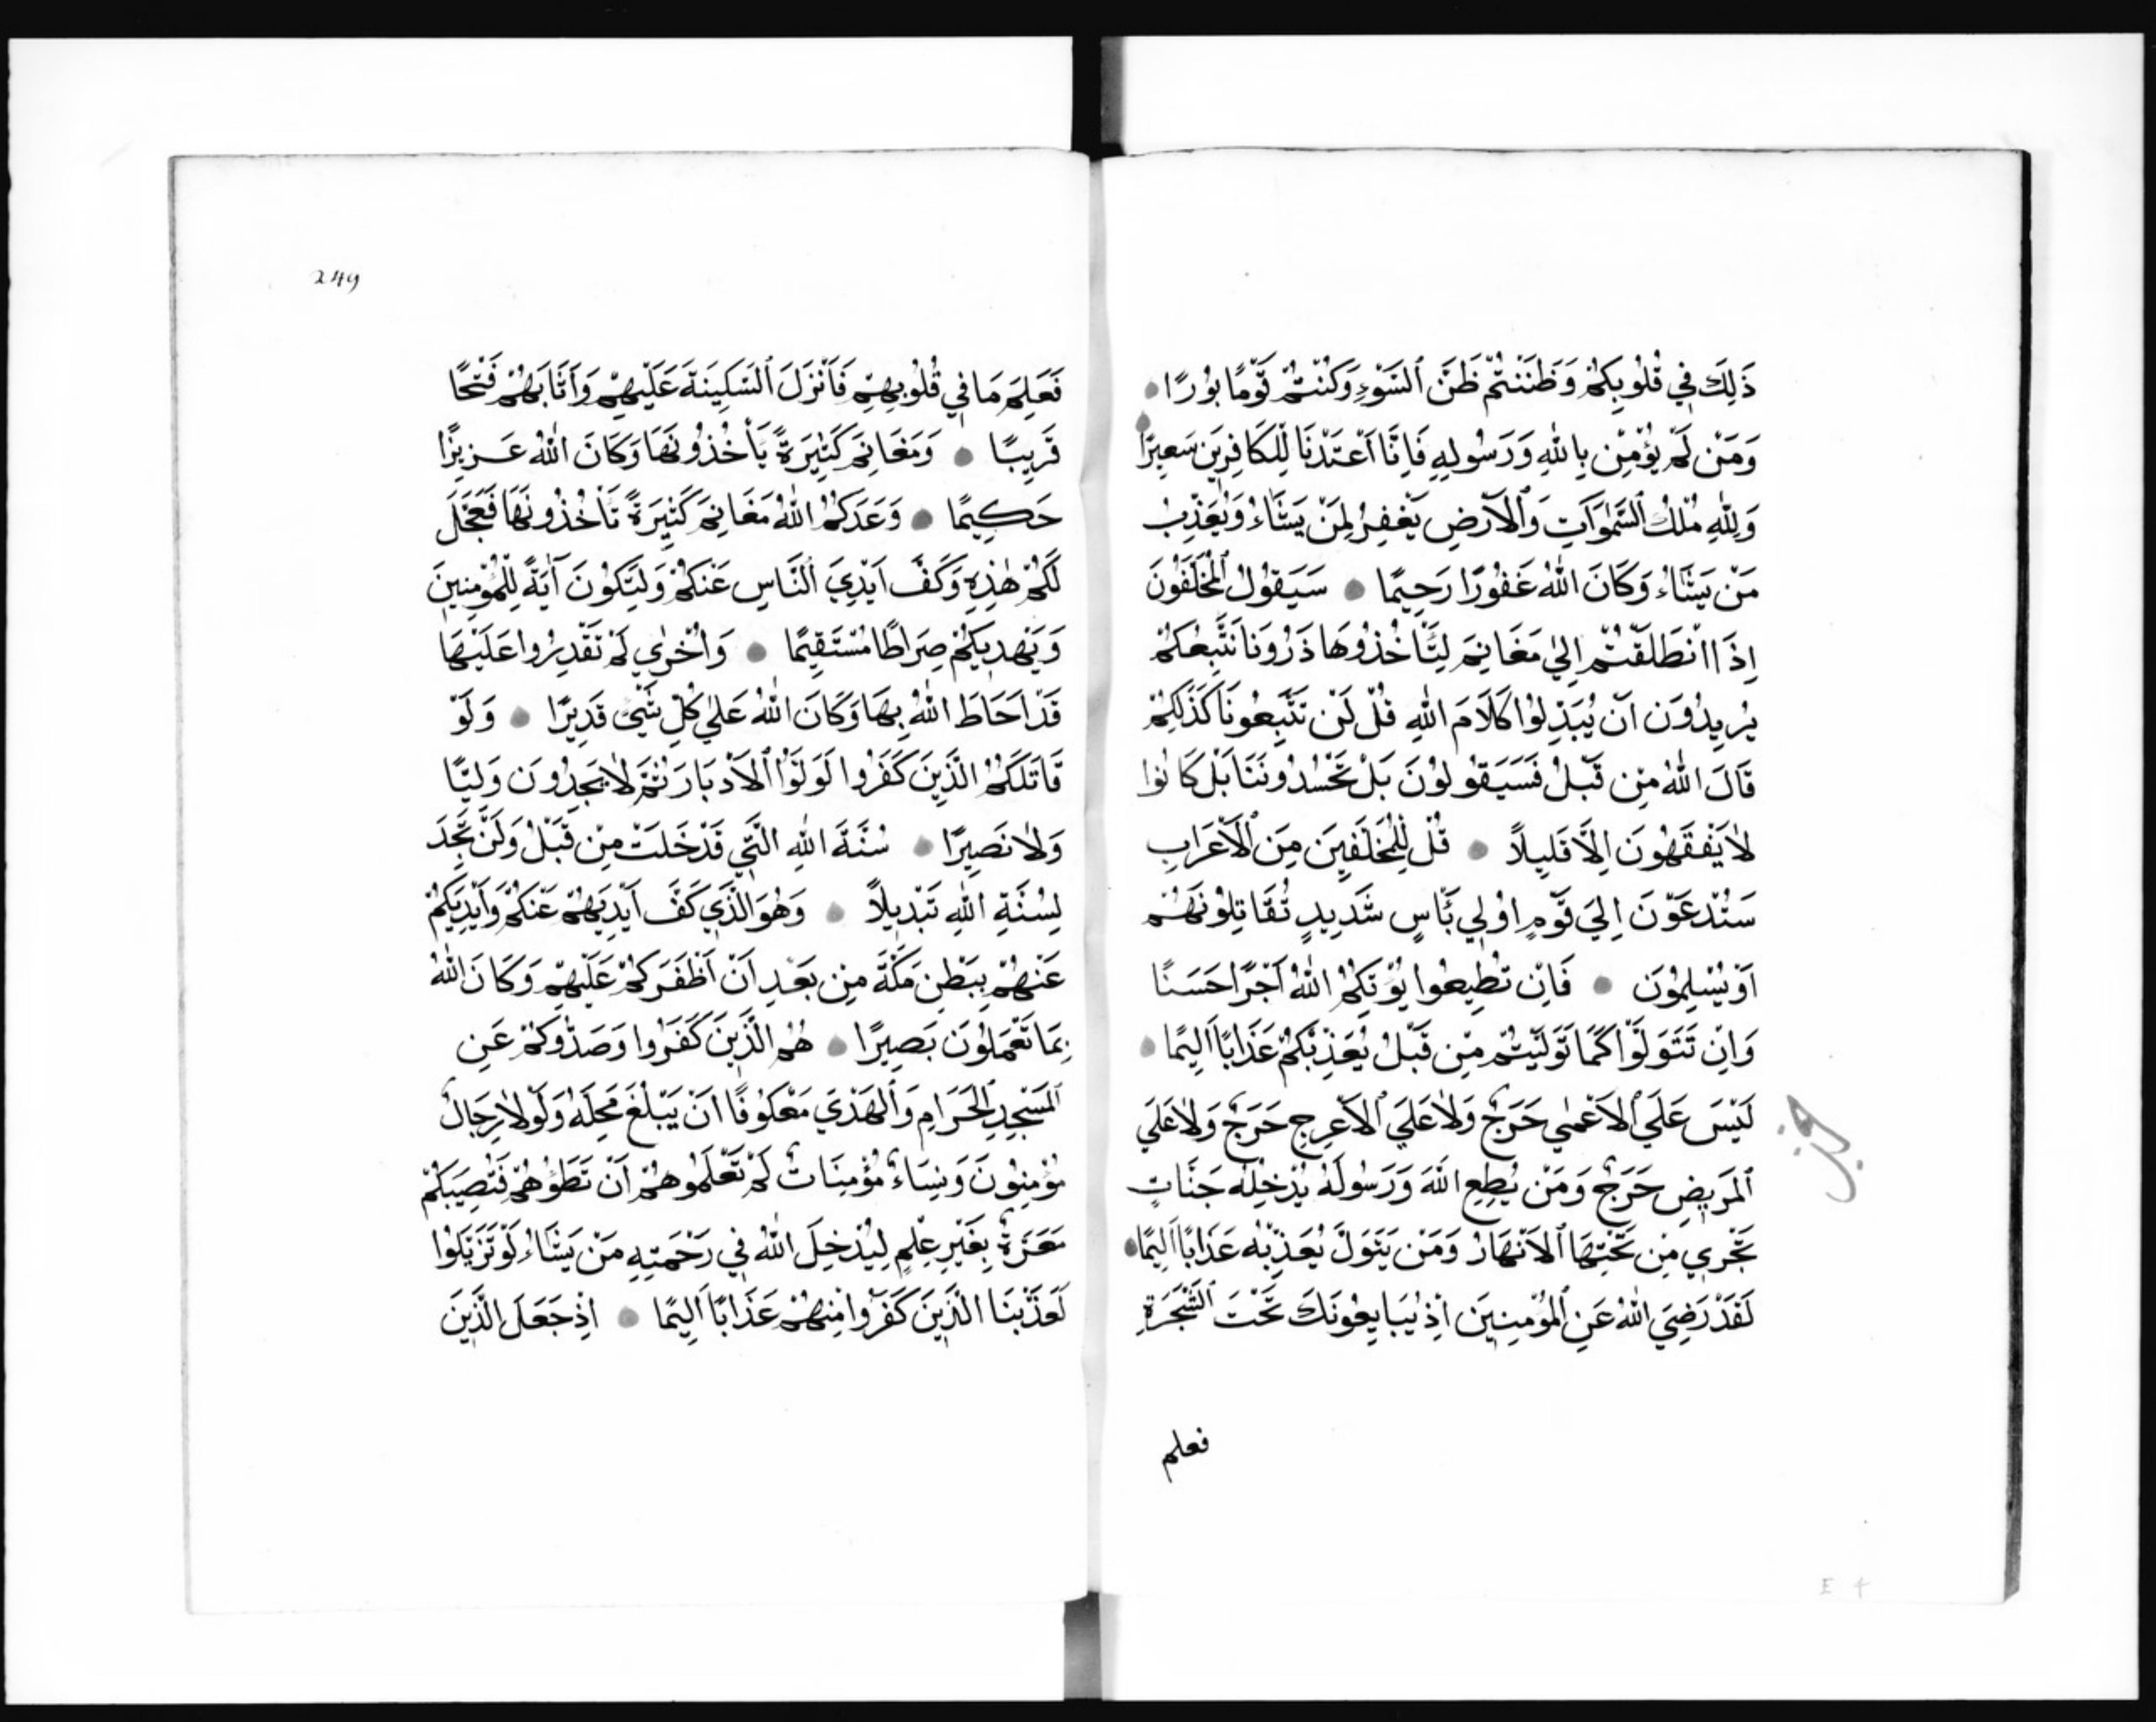 ذَلِكَ فِي قُلُوبِكُمْ وَظَنَنْتُمْ ظَنَّ ٱلسَّوْءِ وَكُنْتُمْ قَوْمًا بُورًا
وَمَنْ لَمْ يُؤْمِنْ بِاللهِ وَرَسُولِهِ فَاِنَّا اَعْتَدْنَا لِلْكَافِرِينَ سَعِيرًا
وَلِلّٰهِ مُلْكُ ٱلسَّمٰوَاتِ وَٱلْاَرْضِ يَغْفِرُ لِمَنْ يَشَاءُ وَيُعَذِّبُ
مَنْ يَشَاءُ وَكَانَ اللهُ غَفُورًا رَحِيمًا سَيَقُولُ ٱلْمُخَلَّفُونَ
اِذَا انْطَلَقْتُمْ اِلىٰ مَغَانِمَ لِتَأْخُذُوهَا ذَرُونَا نَتَّبِعْكُمْ
يُرِيدُونَ اَنْ يُبَدِّلُوْا كَلَامَ اللهِ قُلْ لَنْ تَتَّبِعُونَا كَذٰلِكُمْ
قَالَ اللهُ مِنْ قَبْلُ فَسَيَقُولُوْنَ بَلْ تَحْسُدُونَنَا بَلْ كَانُوْا
لَا يَفْقَهُونَ اِلَّا قَلِيلًا قُلْ لِلْمُخَلَّفِينَ مِنَ ٱلْاَعْرَابِ
سَتُدْعَوْنَ اِلَي قَوْمٍ اوُلِي بَأْسٍ شَدِيدٍ تُقَاتِلُونَهُمْ
اَوْ يُسْلِمُوْنَ فَاِنْ تُطِيعُوا يُؤْتِكُمُ اللهُ اَجْرًا حَسَنًا
وَاِنْ تَتَوَلَّوْا كَمَا تَوَلَّيْتُمْ مِنْ قَبْلُ يُعَذِّبْكُمْ عَذَابًا اَلِيمًا
لَيْسَ عَلَي ٱلْاَعْمٰي حَرَجٌ وَلَا عَلَي ٱلْاَعْرَجِ حَرَجٌ وَلَا عَلَي
ٱلْمَرِيضِ حَرَجٌ وَمَنْ يُطِعِ اللهَ وَرَسُولَهُ يُدْخِلْهُ جَنَّاتٍ
تَجْرِي مِنْ تَحْتِهَا ٱلْاَنْهَارُ وَمَنْ يَتَوَلَّ يُعَذِّبْهُ عَذَابًا اَلِيمًا
لَقَدْ رَضِيَ اللهُ عَنِ ٱلْمُؤْمِنِينَ اِذْ يُبَايِعُونَكَ تَحْتَ ٱلشَّجَرَةِ
فعلم
E 4
249
فَعَلِمَ مَا فِي قُلُوبِهِمْ فَاَنْزَلَ ٱلسَّكِينَةَ عَلَيْهِمْ وَاَثَابَهُمْ فَتْحًا
قَرِيبًا وَمَغَانِمَ كَثِيرَةً يَأْخُذُونَهَا وَكَانَ اللهُ عَزِيزًا
حَكِيمًا وَعَدَكُمُ اللهُ مَغَانِمَ كَثِيرَةً تَأْخُذُونَهَا فَعَجَّلَ
لَكُمْ هٰذِهِ وَكَفَّ اَيْدِيَ ٱلنَّاسِ عَنْكُمْ وَلِتَكُونَ آيَةً لِلْمُؤْمِنِينَ
وَيَهْدِيَكُمْ صِرَاطًا مُسْتَقِيمًا وَاُخْرٰي لَمْ تَقْدِرُوا عَلَيْهَا
قَدْ اَحَاطَ اللهُ بِهَا وَكَانَ اللهُ عَلىٰ كُلِّ شَيْءٍ قَدِيرًا وَلَوْ
قَاتَلَكُمُ الَّذِينَ كَفَرُوا لَوَلَّوُا ٱلْاَدْبَارَ ثُمَّ لَا يَجِدُونَ وَلِيًّا
وَلَا نَصِيرًا سُنَّةَ اللهِ الَّتِي قَدْ خَلَتْ مِنْ قَبْلُ وَلَنْ تَجِدَ
لِسُنَّةِ اللهِ تَبْدِيلًا وَهُوَ الَّذِي كَفَّ اَيْدِيَهُمْ عَنْكُمْ وَاَيْدِيَكُمْ
عَنْهُمْ بِبَطْنِ مَكَّةَ مِنْ بَعْدِ اَنْ اَظْفَرَكُمْ عَلَيْهِمْ وَكَانَ اللهُ
بِمَا تَعْمَلُونَ بَصِيرًا هُمُ الَّذِينَ كَفَرُوا وَصَدُّوكُمْ عَنِ
ٱلْمَسْجِدِ ٱلْحَرَامِ وَٱلْهَدْيَ مَعْكُوفًا اَنْ يَبْلُغَ مَحِلَّهُ وَلَوْلَا رِجَالٌ
مُؤْمِنُونَ وَنِسَاءٌ مُؤْمِنَاتٌ لَمْ تَعْلَمُوهُمْ اَنْ تَطَؤُهُمْ فَتُصِيبَكُمْ
مَعَرَّةٌ بِغَيْرِ عِلْمٍ لِيُدْخِلَ اللهُ فِي رَحْمَتِهِ مَنْ يَشَاءُ لَوْ تَزَيَّلُوا
لَعَذَّبْنَا الَّذِينَ كَفَرُوا مِنْهُمْ عَذَابًا اَلِيمًا اِذْ جَعَلَ الَّذِينَ